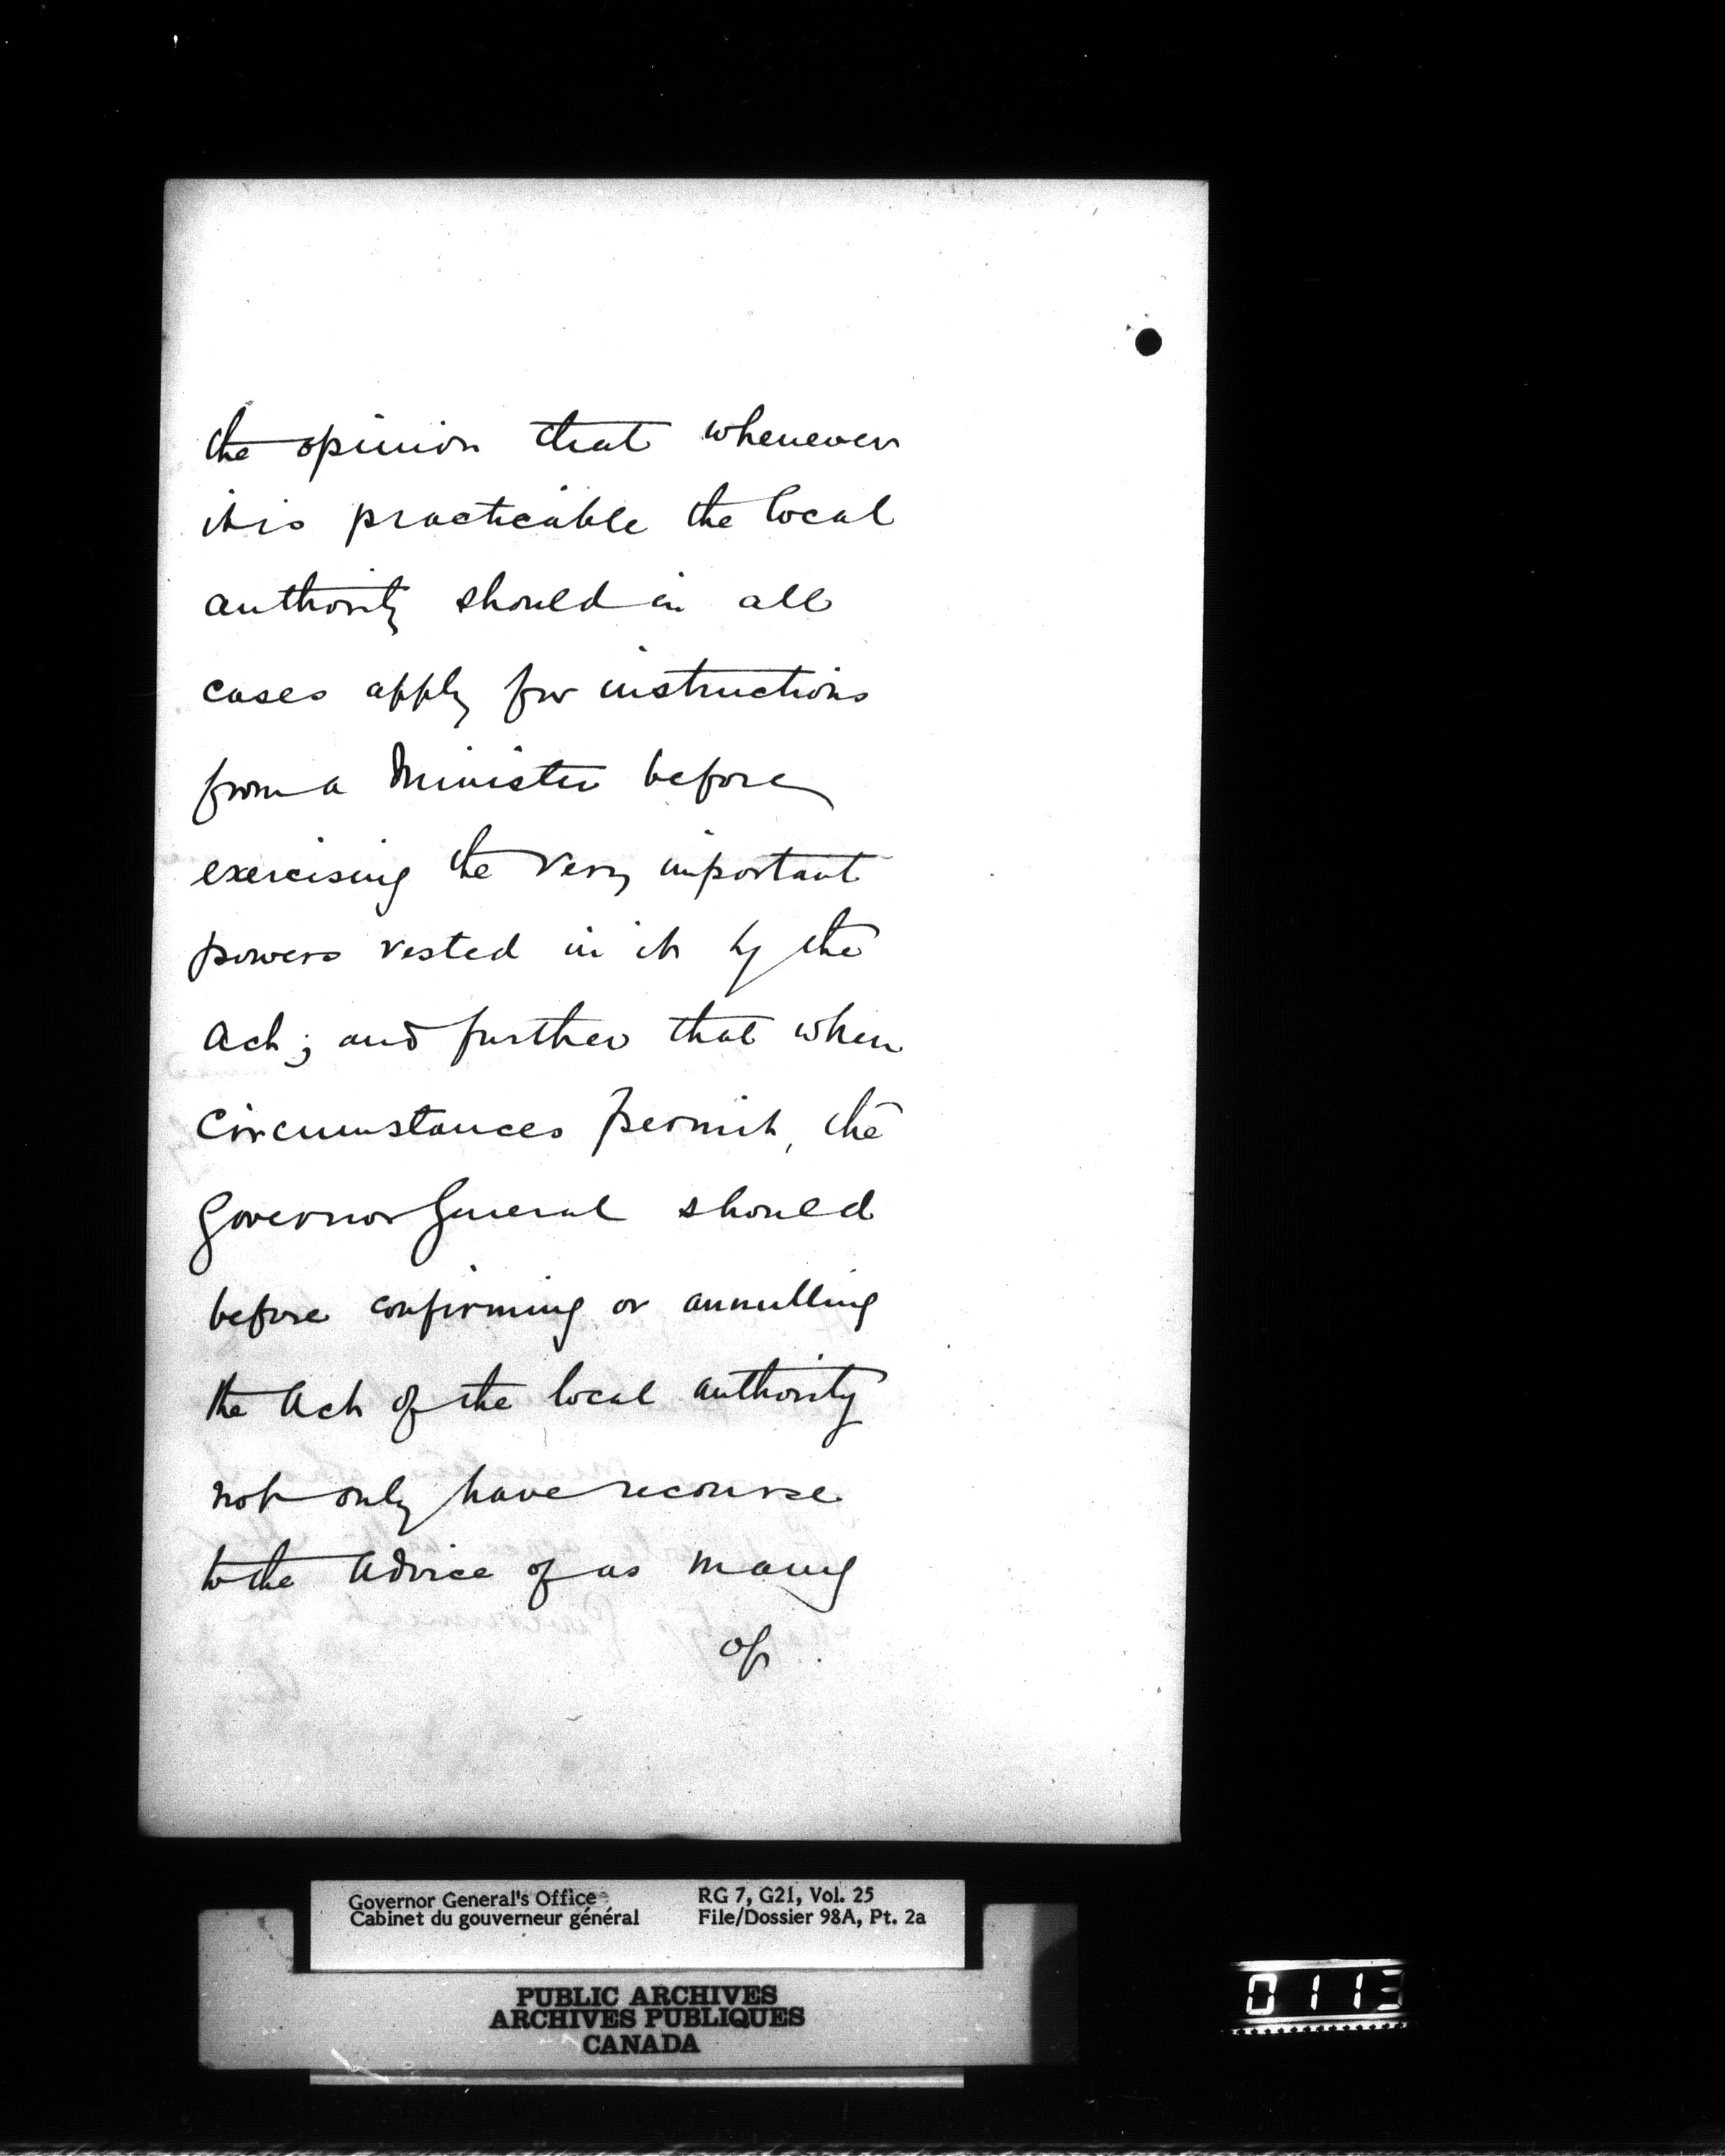 the opinion that whenever
it is practicable the local
authority should in all
cases apply for instructions
from a Minister before
exercising the very important
powers vested in it by the
Act; and further that when
circumstances permit, the
Governor General should
before confirming or annulling
the Act of the local authority
not only have recourse
to the advice of as many
of
Governor General's Office
Cabinet du gouverneur général
RG 7, G21, Vol. 25
File/Dossier 98A, Pt. 2a
PUBLIC ARCHIVES
ARCHIVES PUBLIQUES
CANADA
0113